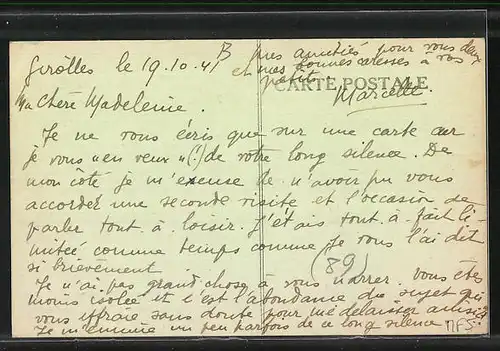 Girolles le 19.10.41
mes amitiés pour vous deux
et mes bonnes caresses à vos
petits.
CARTE POSTALE
Marcelle.
Ma Chère Madeleine.
Je ne vous écris que sur une carte car
je vous "en veux" (!) de votre long silence. De
mon côté je m'excuse de n'avoir pu vous
accorder une seconde visite et l'occasion de
parler tout à loisir. J'étais tout à fait li-
mitée comme temps comme je vous l'ai dit
si brièvement.
(89)
Je n'ai pas grand chose à vous narrer. Vous êtes
moins isolée et c'est l'abondance du sujet qui
vous effraie sans doute pour me délaisser ainsi.
Je m'ennuie un peu parfois de ce long silence